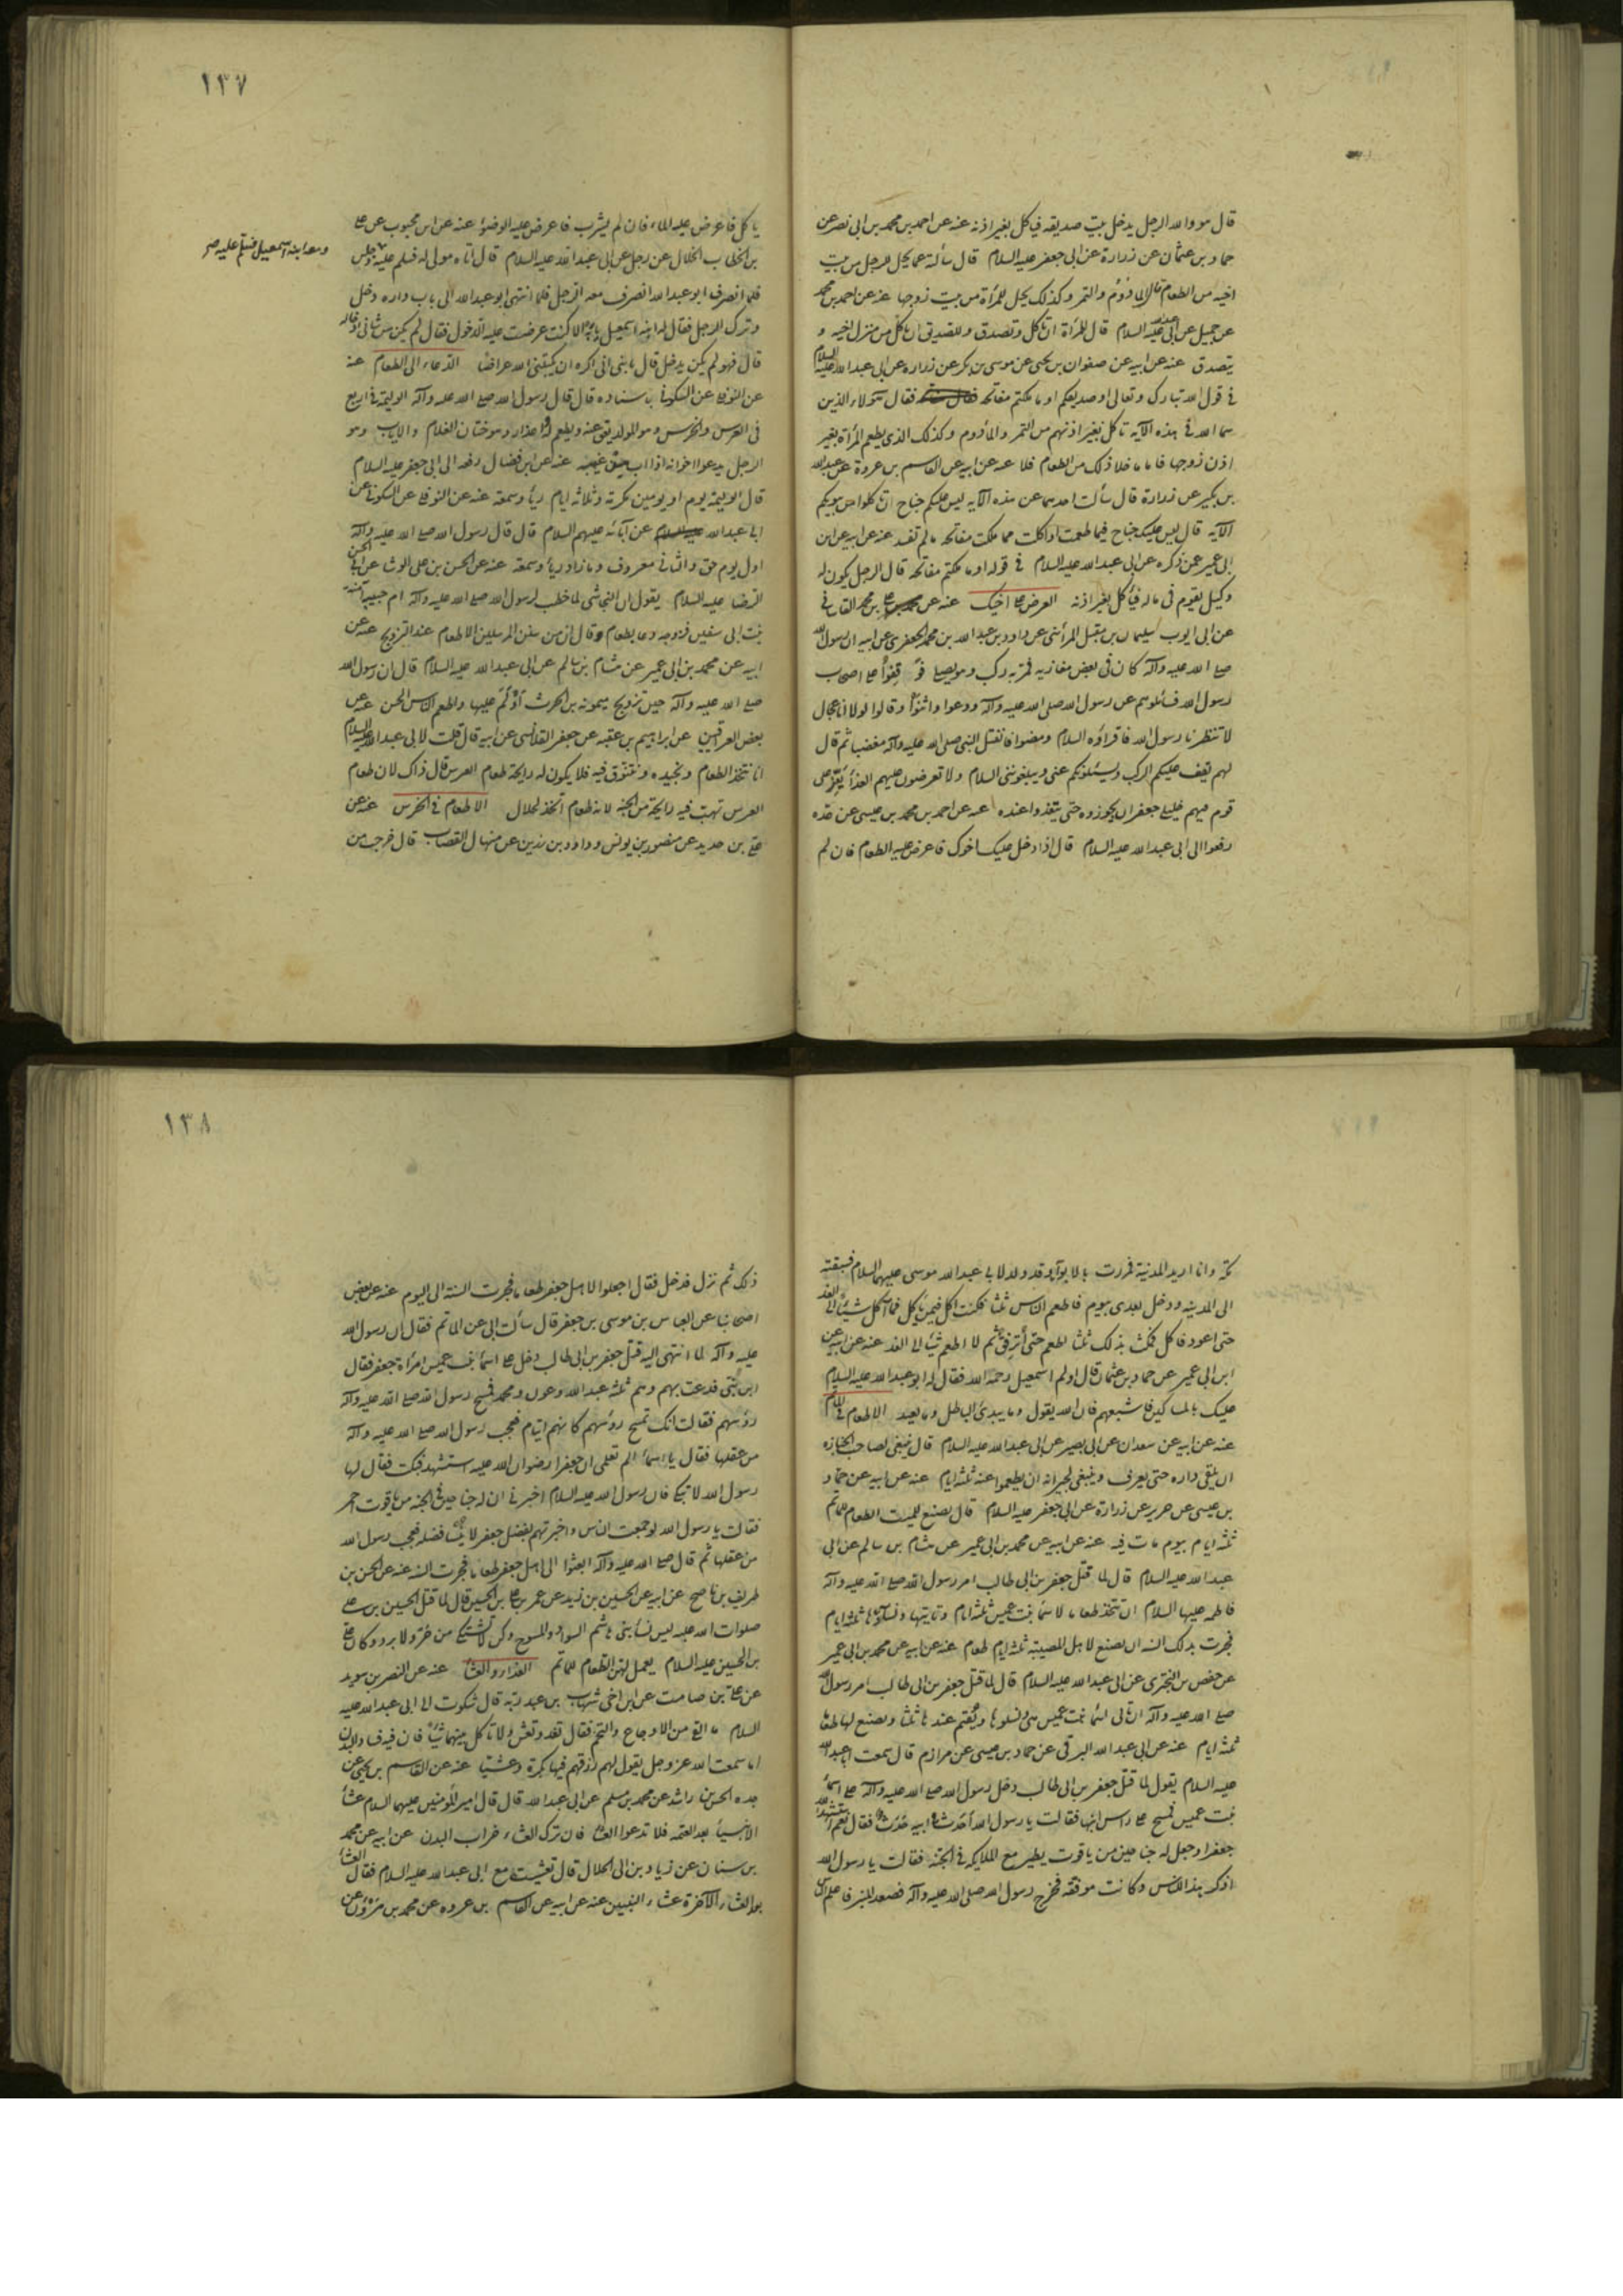 قال هو والله الرجل يدخل بيت صديقه فيأكل بغير اذنه عنه عن احمد بن محمد بن ابى نصر عن
حماد بن عثمان عن زرارة عن ابى جعفر عليه السلام قال سألته عما يحل للرجل من بيت
اخيه من الطعام قال المأدوم والتمر وكذلك يحل للمرأة من بيت زوجها عنه عن احمد بن محمد
عن جميل عن ابى عبد الله عليه السلام قال للمرأة ان تاكل وتصدق وللصديق ان ياكل من منزل اخيه و
يتصدق عنه عن ابيه عن صفوان بن يحيى عن موسى بن بكر عن زرارة عن ابى عبد الله عليه السلام
فى قول الله تبارك وتعالى او صديقكم او ما ملكتم مفاتحه فقال هؤلاء الذين
سما الله فى هذه الآيه تاكل بغير اذنهم من التمر والمأدوم وكذلك الذى يطعم المرأة بغير
اذن زوجها فاما ما خلا ذلك من الطعام فلا عنه عن ابيه عن القاسم بن عروة عن عبد الله
بن بكير عن زرارة قال سألت احدهما عن هذه الآيه ليس عليكم جناح ان تاكلوا من بيوتكم
الآيه قال ليس عليك جناح فيما طعمت او اكلت مما ملكت مفاتحه ما لم تفسد عنه عن ابيه عن ابن
ابى عمير عمن ذكره عن ابى عبد الله عليه السلام فى قوله او ما ملكتم مفاتحه قال الرجل يكون له
وكيل يقوم فى ماله فيأكل بغير اذنه العرض على اخيك عنه عن على بن محمد القاسانى
عن ابى ايوب سليمان بن مقبل المدائنى عن داود بن عبد الله بن محمد الجعفرى عن ابيه ان رسول الله
صلى الله عليه وآله كان فى بعض مغازيه فمر به ركب وهو يصلى فوقفوا على اصحاب
رسول الله فسائلوهم عن رسول الله صلى الله عليه وآله ودعوا واثنوا وقالوا لولا انا عجال
لانتظرنا رسول الله فاقرؤه السلام ومضوا فانفتل النبى صلى الله عليه وآله مغضبا ثم قال
لهم يقف عليكم الركب ويسئلونكم عنى ويبلغونى السلام ولا تعرضون عليهم الغذاء يعز على
قوم فيهم خليلى جعفر ان يجوزوه حتى يتغذوا عنده عنه عن احمد بن محمد بن عيسى عن عدة
رفعوا الى ابى عبد الله عليه السلام قال اذا دخل عليك اخوك فاعرض عليه الطعام فان لم
١٣٧
ياكل فاعرض عليه الماء فان لم يشرب فاعرض عليه الوضوء عنه عن ابن محبوب عن على
ومعه ابنه اسمعيل فسلم عليه
بن الخطاب الخلال عن رجل عن ابى عبد الله عليه السلام قال اتاه مولى له فسلم عليه وجلس
فلما انصرف ابو عبد الله انصرف معه الرجل فلما انتهى ابو عبد الله الى باب داره دخل
وترك الرجل فقال له ابنه اسمعيل يا ابه الا كنت عرضت عليه الدخول فقال لم يكن من شانى ادخاله
قال فهو لم يكن يدخل قال يا بنى انى اكره ان يكتبنى الله عراضا الدعاء الى الطعام عنه
عن النوفلى عن السكونى باسناده قال قال رسول الله صلى الله عليه وآله الوليمة فى اربع
فى العرس والخرس وهو المولود يعق عنه ويطعم له واعذار وهو ختان الغلام والاياب وهو
الرجل يدعوا اخوانه اذا اب من غيبته عنه عن ابن فضال رفعه الى ابى جعفر عليه السلام
قال الوليمة يوم او يومين مكرمة وثلاثه ايام رياء وسمعة عنه عن النوفلى عن السكونى عن
ابى عبد الله عن آبائه عليهم السلام قال قال رسول الله صلى الله عليه وآله
اول يوم حق والثانى معروف وما زاد رياء وسمعة عنه عن الحسن بن على الوشا عن ابى الحسن
الرضا عليه السلام يقول ان النجاشى لما خطب لرسول الله صلى الله عليه وآله ام حبيبه آمنة
بنت ابى سفين فزوجه دعا بطعام وقال ان من سنن المرسلين الاطعام عند التزويج عنه عن
ابيه عن محمد بن ابى عمير عن هشام بن سالم عن ابى عبد الله عليه السلام قال ان رسول الله
صلى الله عليه وآله حين تزويج ميمونه بن الحرث اولم عليها واطعم الناس الحيس عنه عن
بعض العراقيين عن ابراهيم بن عقبه عن جعفر القلانسى عن ابيه قال قلت لابى عبد الله عليه السلام
انا نتخذ الطعام ونجيده ونتنوق فيه فلا يكون له رايحة طعام العرس قال ذاك لان طعام
العرس تهب فيه رايحة من الجنه لانه طعام اتخذ لحلال الاطعام فى الخرس عنه عن
على بن حديد عن منصور بن يونس وداود بن رزين عن منهال القصاب قال خرجت من
مكه وانا اريد المدنية فمررت بالابواء وقد ولد لابى عبد الله موسى عليهما السلام فسبقته
الى المدينه ودخل بعدى بيوم فاطعم الناس ثلثا فكنت اكل فيمن ياكل فما اكل شيئا الى الغد
حتى اعود فاكل فمكثت بذلك ثلثا اطعم حتى ارتفق ثم لا اطعم شيئا الى الغد عنه عن ابيه عن
ابن ابى عمير عن حماد بن عثمان قال اولم اسمعيل رحمه الله فقال له ابو عبد الله عليه السلام
عليك بالمساكين فاشبعهم فان الله يقول وما يبدئ الباطل وما يعيد الاطعام فى المأتم
عنه عن ابيه عن سعدان عن ابى بصير عن ابى عبد الله عليه السلام قال ينبغى لصاحب الجنازه
ان يلقى رداه حتى يعرف وينبغى لجيرانه ان يطعموا عنه ثلثه ايام عنه عن ابيه عن حماد
بن عيسى عن حريز عن زرارة عن ابى جعفر عليه السلام قال يصنع للميت الطعام للمأتم
ثلثه ايام بيوم مات فيه عنه عن ابيه عن محمد بن ابى عمير عن هشام بن سالم عن ابى
عبد الله عليه السلام قال لما قتل جعفر بن ابى طالب امر رسول الله صلى الله عليه وآله
فاطمه عليها السلام ان تتخذ طعاما لاسماء بنت عميس ثلثه ايام وتاتيها ونساءها ثلثه ايام
فجرت بذلك السنه ان يصنع لاهل المصيبة ثلثه ايام طعام عنه عن ابيه عن محمد بن ابى عمير
عن حفص بن البخترى عن ابى عبد الله عليه السلام قال لما قتل جعفر بن ابى طالب امر رسول الله
صلى الله عليه وآله ان تاتى اسماء بنت عميس هى ونساؤها وتقيم عندها ثلثا وتصنع لها طعاما
ثلثه ايام عنه عن ابى عبد الله البرقى عن حماد بن عيسى عن مرازم قال سمعت ابا عبد الله
عليه السلام يقول لما قتل جعفر بن ابى طالب دخل رسول الله صلى الله عليه وآله على اسماء
بنت عميس فمسح على راس ابنها فقالت يا رسول الله أحدث بابيه حدث فقال نعم استشهد الله
جعفرا وجعل له جناحين من ياقوت يطير مع الملايكه فى الجنه فقالت يا رسول الله
اذكر هذا للناس وكانت موفقه فخرج رسول الله صلى الله عليه وآله فصعد المنبر فاعلم الناس
١٣٨
ذلك ثم نزل فدخل فقال اجعلوا لاهل جعفر طعاما فجرت السنة الى اليوم عنه عن بعض
اصحابنا عن العباس بن موسى بن جعفر قال سألت ابى عن المأتم فقال ان رسول الله
عليه وآله لما انتهى اليه قتل جعفر بن ابى طالب دخل على اسماء بنت عميس امرأة جعفر فقال
اين بنى فدعت بهم وهم ثلثه عبد الله وعون ومحمد فمسح رسول الله صلى الله عليه وآله
رؤسهم فقالت انك تمسح رؤسهم كانهم ايتام فعجب رسول الله صلى الله عليه وآله
من عقلها فقال يا اسماء الم تعلمى ان جعفرا رضوان الله عليه استشهد فبكت فقال لها
رسول الله لا تبكى فان رسول الله عليه السلام اخبرنى ان له جناحين فى الجنه من ياقوت احمر
فقالت يا رسول الله لو جمعت الناس واخبرتهم بفضل جعفر لا ينسا فضله فعجب رسول الله
من عقلها ثم قال صلى الله عليه وآله ابعثوا الى اهل جعفر طعاما فجرت السنه عنه عن الحسن بن
ظريف بن ناصح عن ابيه عن الحسين بن زيد عن عمر بن على بن الحسين قال لما قتل الحسين بن على
صلوات الله عليه لبس نساء بنى هاشم السواد والمسوح وكن لا يشتكين من حر ولا برد وكان على
بن الحسين عليه السلام يعمل لهن الطعام للمأتم الغداء والعشاء عنه عن النصر بن سويد
عن على بن صامت عن ابن اخى شهاب بن عبد ربه قال شكوت الى ابى عبد الله عليه
السلام ما القى من الاوجاع والتخم فقال تغد وتعش ولا تاكل بينهما شيئا فان فيه فساد البدن
اما سمعت الله عز وجل يقول لهم رزقهم فيها بكرة وعشيا عنه عن القاسم بن يحيى عن
جده الحسن بن راشد عن محمد بن مسلم عن ابى عبد الله قال قال امير المؤمنين عليهما السلام عشاء
الانبياء بعد العتمه فلا تدعوا العشاء فان ترك العشاء خراب البدن عن ابيه عن محمد
بن سنان عن زياد بن ابى الحلال قال تعشيت مع ابى عبد الله عليه السلام فقال العشاء
بعد العشاء الآخرة عشاء النبيين عنه عن ابيه عن القاسم بن عروه عن محمد بن مروان عن